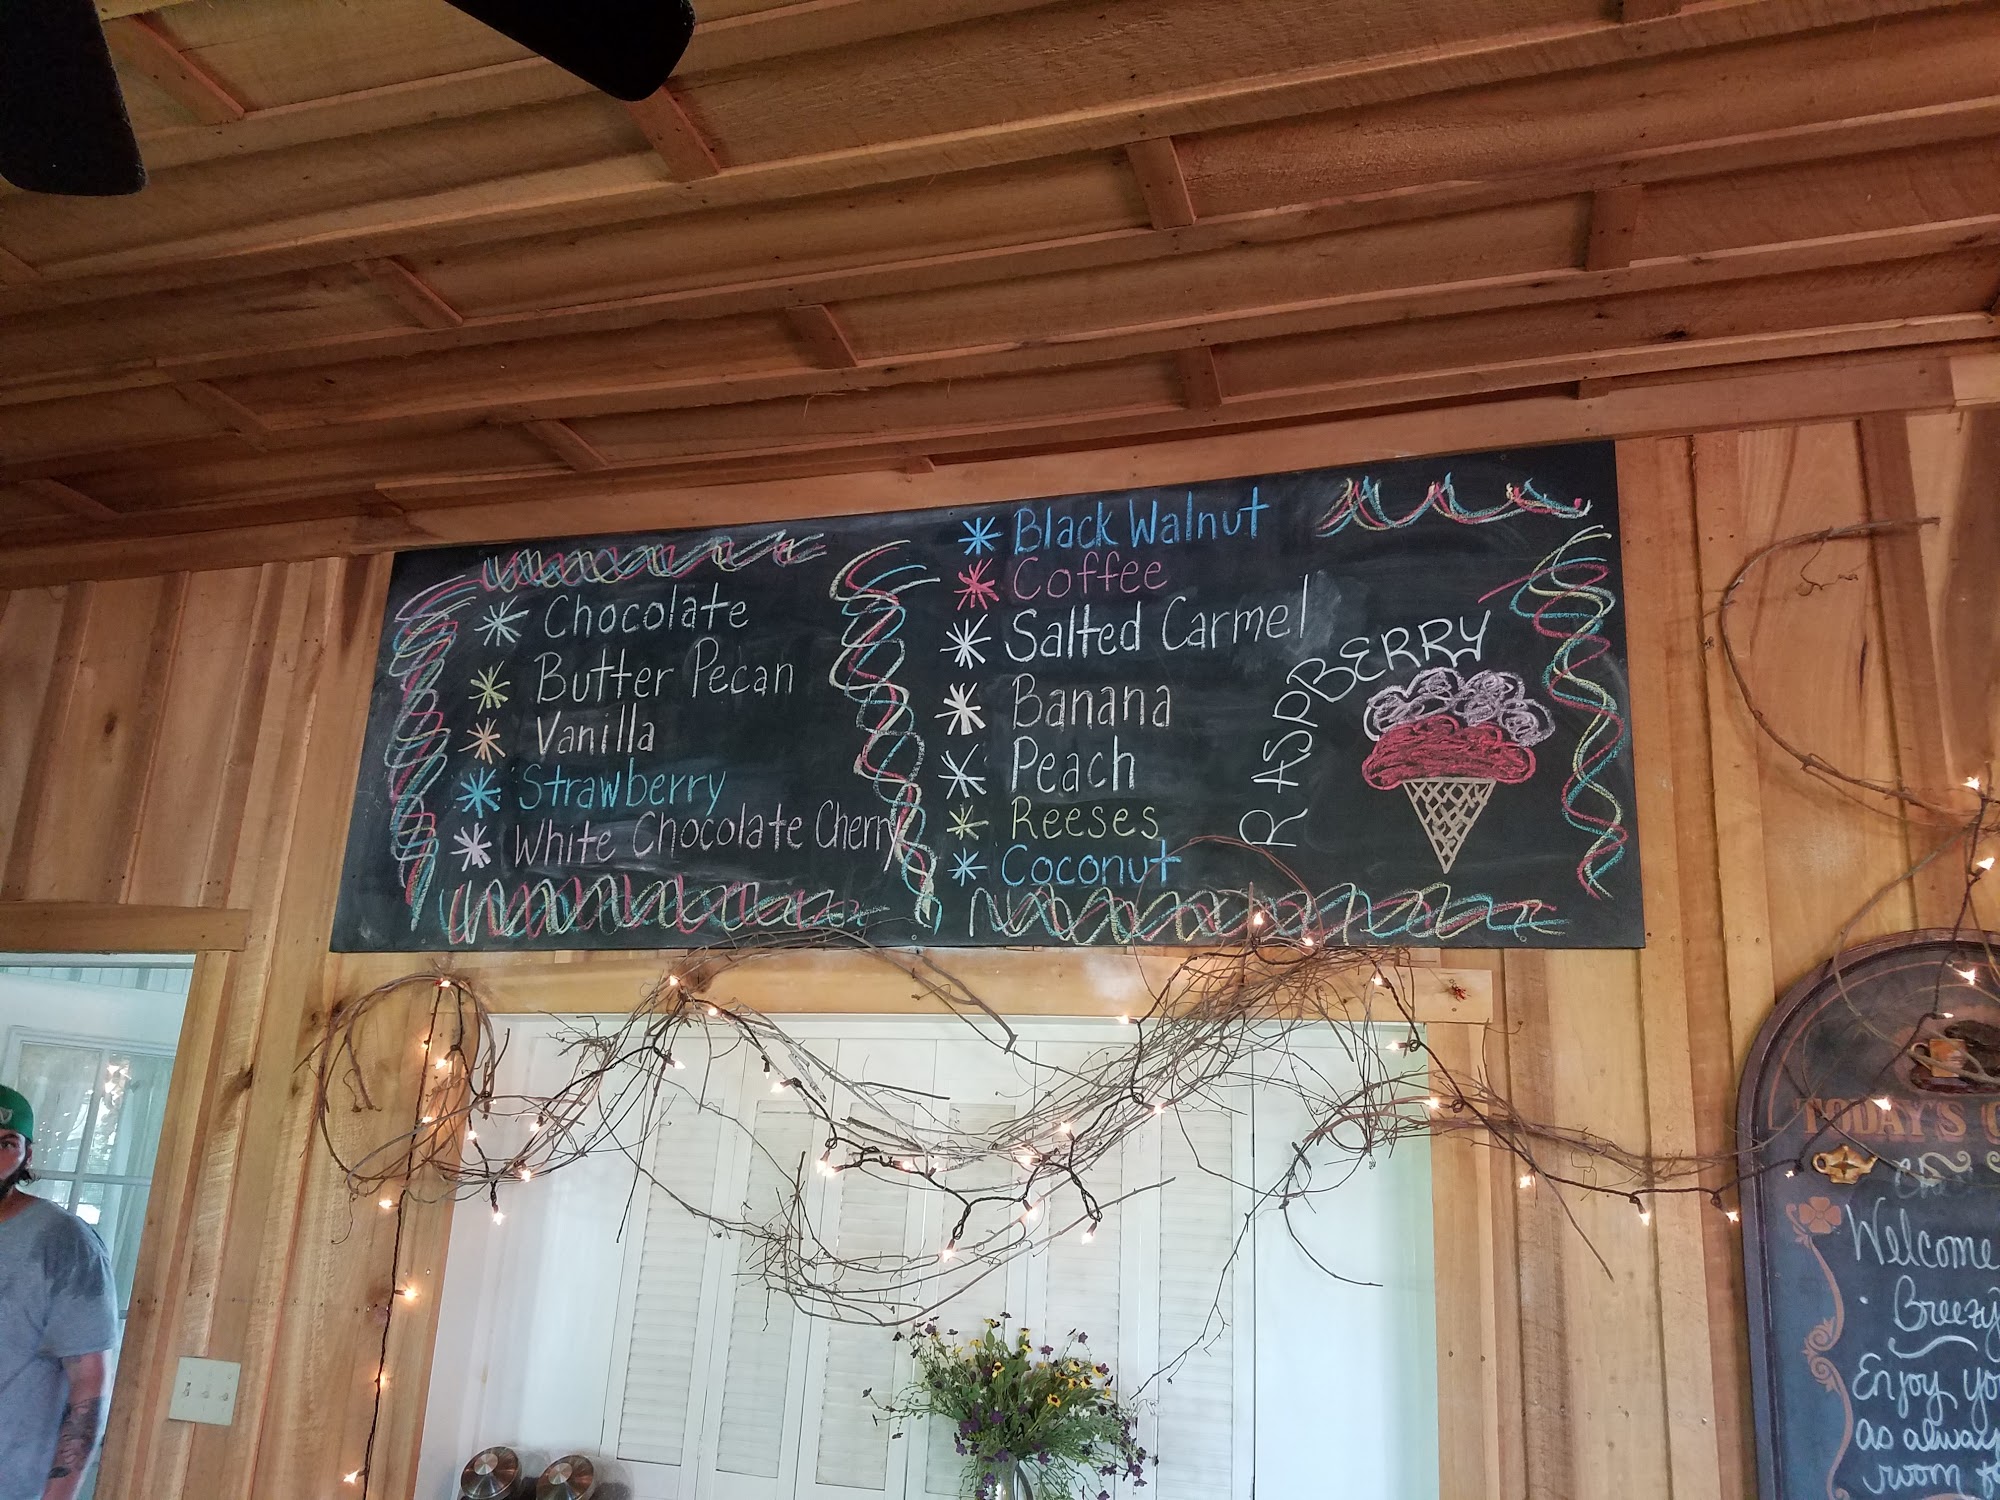 Chocolate
Butter Pecan
Vanilla
Strawberry
White Chocolate Cherry
Black Walnut
Coffee
Salted Carmel
Banana
Peach
Reeses
Coconut
RASPBERRY
TODAY'S
Welcome
Breezy
Enjoy
as
room